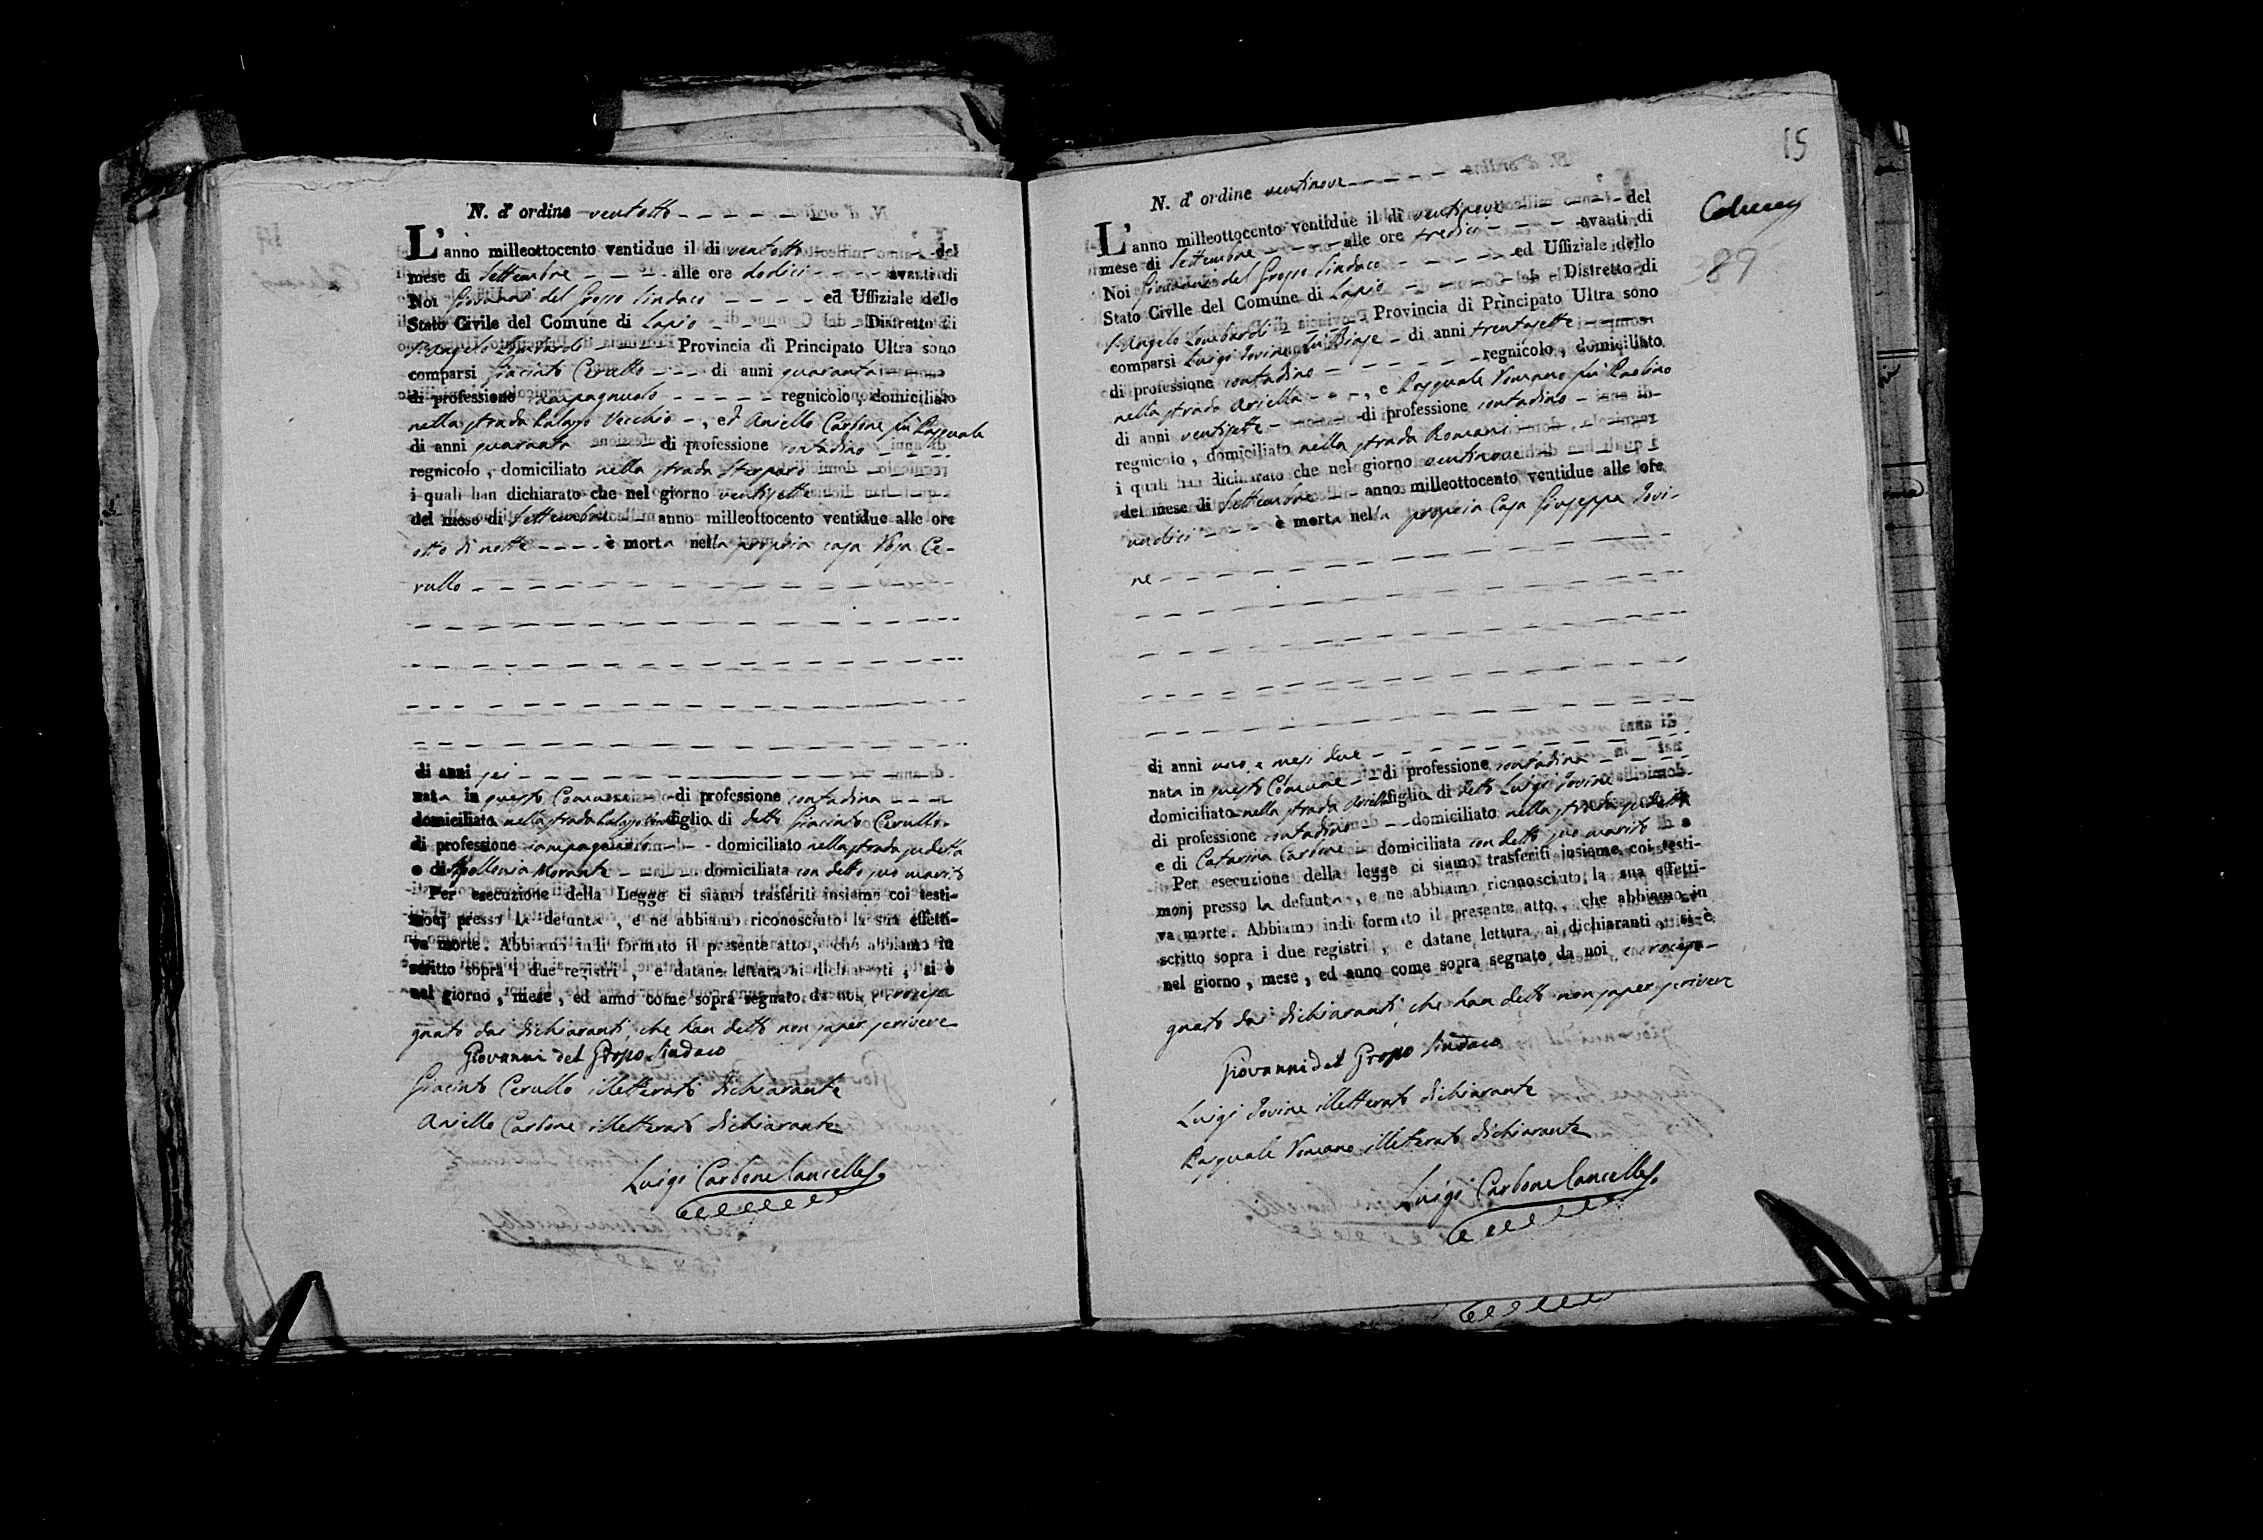 N. d' ordine ventotto
L' anno milleottocento ventidue il di ventotto del
mese di Settembre alle ore dodici avanti di
Noi Giovanni del Grosso Sindaco ed Uffiziale dello
Stato Civile del Comune di Lapio Distretto di
S. Angelo Lombardi Provincia di Principato Ultra sono
comparsi Giacinto Cerullo di anni quaranta
di professione campagnuolo regnicolo, domiciliato
nella strada Palazzo Vecchio, ed Aniello Carbone fu Pasquale
di anni quaranta di professione contadino
regnicolo, domiciliato nella strada
i quali han dichiarato che nel giorno ventisette
del mese di Settembre anno milleottocento ventidue alle ore
otto di notte è morta nella propria casa Rosa Ce-
rullo
di anni sei
nata in questo Comune di professione contadina
domiciliato nella strada Palazzo figlia di detto Giacinto Cerullo
di professione campagnuolo domiciliato nella strada sudetta
e di Apollonia Morante domiciliata con detto suo marito
Per esecuzione della Legge ci siamo trasferiti insieme coi testi-
monj presso la defunta, e ne abbiamo riconosciuto la sua effetti-
va morte. Abbiamo indi formato il presente atto, che abbiamo in
scritto sopra i due registri, e datane lettura ai dichiaranti, si è
nel giorno, mese, ed anno come sopra segnato da noi, e crocese
gnato dai dichiaranti, che han detto non saper scrivere
Giovanni del Grosso Sindaco
Giacinto Cerullo illetterato dichiarante
Aniello Carbone illetterato dichiarante
Luigi Carbone Cancelle.
15
89
N. d' ordine ventinove
L' anno milleottocento ventidue il di ventinove del
mese di Settembre alle ore tredici avanti di
Noi Giovanni del Grosso Sindaco ed Uffiziale dello
Stato Civile del Comune di Lapio Distretto di
S. Angelo Lombardi Provincia di Principato Ultra sono
comparsi Luigi Iovine fu Biase di anni trentasette
di professione contadino regnicolo, domiciliato
nella strada Ariella, e Pasquale Romano fu Paolino
di anni ventisette di professione contadino
regnicolo, domiciliato nella strada Romani
i quali han dichiarato che nel giorno ventinove
del mese di Settembre anno milleottocento ventidue alle ore
undici è morta nella propria Casa Giuseppa Iovi-
ne
di anni uno, e mesi due
nata in questo Comune di professione contadina
domiciliato nella strada Ariella figlia di detto Luigi Iovine
di professione contadino domiciliato nella strada sudetta
e di Catarina Carbone domiciliata con detto suo marito
Per esecuzione della legge ci siamo trasferiti insieme coi testi-
monj presso la defunta, e ne abbiamo riconosciuto la sua effetti-
va morte. Abbiamo indi formato il presente atto, che abbiamo in
scritto sopra i due registri, e datane lettura ai dichiaranti, si è
nel giorno, mese, ed anno come sopra segnato da noi, e crocese-
gnato dai dichiaranti, che han detto non saper scrivere
Giovanni del Grosso Sindaco
Luigi Iovine illetterato dichiarante
Pasquale Romano illetterato dichiarante
Luigi Carbone Cancelle.